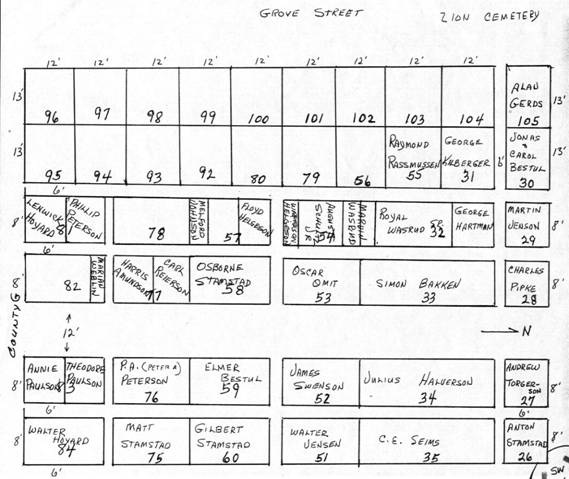 GROVE STREET ZION CEMETERY
12' 12' 12' 12' 12' 12' 12' 12' 12'
13' 96 97 98 99 100 101 102 103 104 ALAN GERDS 105 13'
13' 95 94 93 92 80 79 56 RAYMOND RASSMUSSEN 55 GEORGE 31 6' JONAS & CAROL BESTUL 30 13'
6'
8' LENWICK HOYARD PHILLIP PETERSON 78 57 FLOYD HELGESON AUGUST JR 54 ROYAL WASRUD SR. 32 GEORGE HARTMAN MARTIN JENSON 29 8'
6'
COUNTY G 8' 82 MARIAN HARRIS AMUNDSON 77 CARL REIERSON OSBORNE STAMSTAD 58 OSCAR OMIT 53 SIMON BAKKEN 33 CHARLES PIPKE 28 8'
12' N
8' ANNIE PAULSON 83 THEODORE PAULSON P.A. (PETER A) PETERSON 76 ELMER BESTUL 59 JAMES SWENSON 52 JULIUS HALVERSON 34 ANDREW TORGERSON 27 8'
6' 6'
8' WALTER HOYARD 84 MATT STAMSTAD 75 GILBERT STAMSTAD 60 WALTER JENSEN 51 C.E. SEIMS 35 ANTON STAMSTAD 26 8'
6' SW